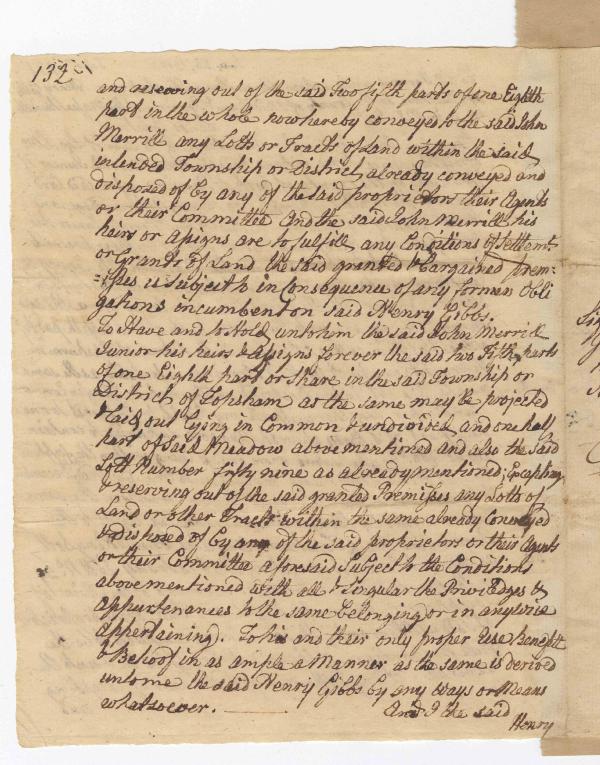 132
and reserving out of the said Two fifth parts of one Eighth
part in the whole now hereby conveyed to the said John
Merrill any Lotts or Tracts of Land within the said
intended Township or District, already conveyed and
disposed of by any of the said proprietors their Agents
or their Committee And the said John Merrill his
heirs or assigns are to fulfill any Conditions of Settlemt.
or Grants of Land the said granted & bargained prem=
=isses is subject to in Consequence of any former Obli
gations incumbent on said Henry Gibbs.
To Have and to Hold unto him the said John Merrill
Junior his heirs & Assigns forever the said two Fifth parts
of one Eighth part or Share in the said Township or
District of Topsham as the same may be projected
& laid out lying in Common & undivided, and one half
part of said Meadow above mentioned and also the said
Lott Number fifty nine as already mentioned; Excepting
& reserving out of the said granted Premisses any Lotts of
Land or other Tracts within the same already Conveyed
& Disposed of by any of the said proprietors or their Agents
or their Committee aforesaid Subject to the Conditions
above mentioned with all & Singular the Priviledges &
Appurtenances to the same belonging or in any wise
appertaining. To his and their only proper Use Benefitt
& Behoof in as ample a Manner as the same is derived
unto me the said Henry Gibbs by any ways or Means
whatsoever. And I the said
Henry